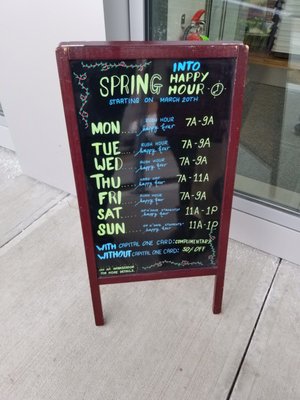 INTO
SPRING HAPPY
HOUR
STARTING ON MARCH 20TH
MON.... RUSH HOUR happy hour 7A-9A
TUE.... RUSH HOUR happy hour 7A-9A
WED.... RUSH HOUR happy hour 7A-9A
THU.... happy hour 7A-11A
FRI.... RUSH HOUR happy hour 7A-9A
SAT.... happy hour 11A-1P
SUN.... happy hour 11A-1P
WITH CAPITAL ONE CARD: COMPLIMENTARY
WITHOUT CAPITAL ONE CARD: 50% OFF
FOR MORE DETAILS.